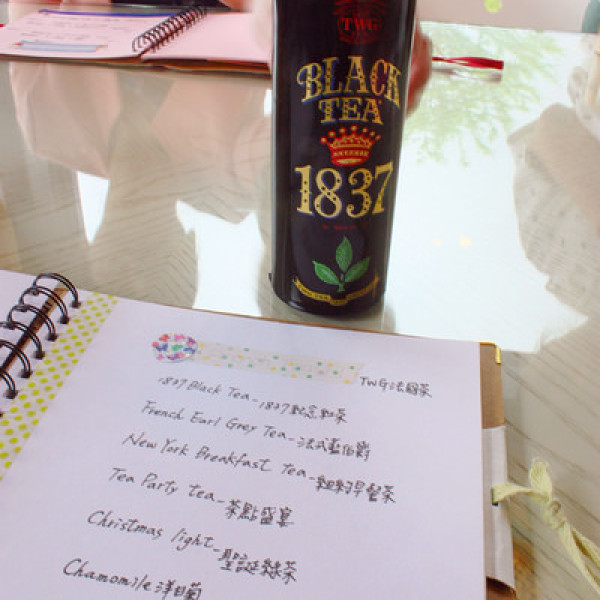 TWG
BLACK
TEA
1837
TWG法國茶
1837 Black Tea-1837紀念紅茶
French Earl Grey Tea-法式藍伯爵
New York Breakfast tea-紐約早餐茶
Tea Party tea-茶點盛宴
Christmas light-聖誕綠茶
Chamomile洋甘菊